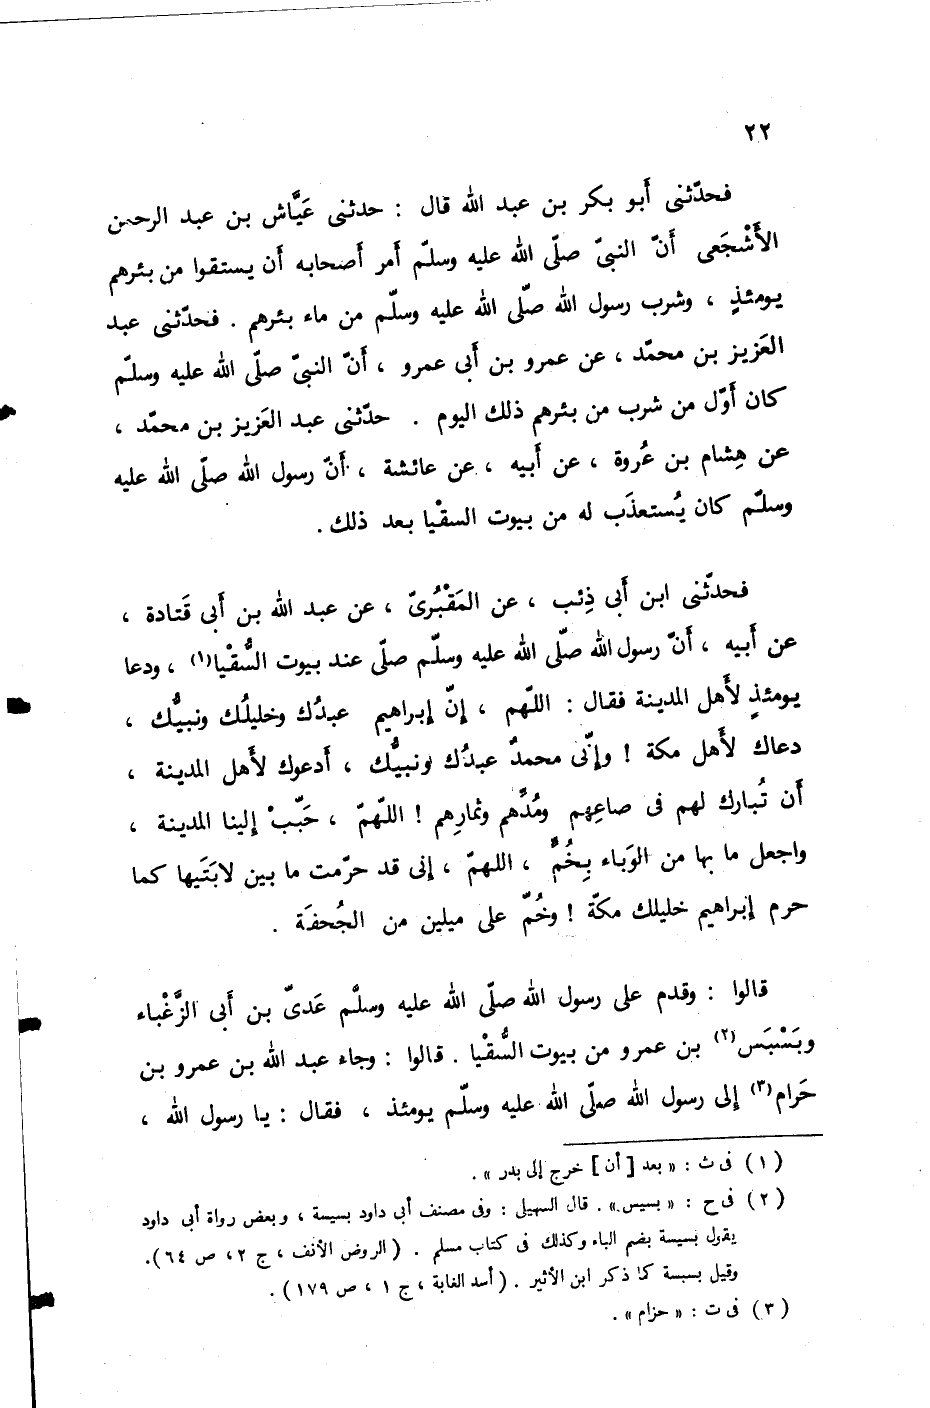 ٢٢
فحدّثنى أَبو بكر بن عبد الله قال : حدثنى عَيَّاش بن عبد الرحمن
الأَشْجَعى أَنّ النبىّ صلّى الله عليه وسلّم أَمر أَصحابه أَن يستقوا من بئرهم
يومئذٍ ، وشرب رسول الله صلّى الله عليه وسلّم من ماء بئرهم . فحدّثنى عبد
العَزيز بن محمّد ، عن عمرو بن أَبى عمرو ، أَنّ النبىّ صلّى الله عليه وسلّم
كان أَوّل من شرب من بئرهم ذلك اليوم . حدّثنى عبد العَزيز بن محمّد ،
عن هِشام بن عُروة ، عن أَبيه ، عن عائشة ، أَنّ رسول الله صلّى الله عليه
وسلّم كان يُستعذَب له من بيوت السقْيا بعد ذلك .
فحدّثنى ابن أَبى ذِئب ، عن المَقْبُرىّ ، عن عبد الله بن أَبى قَتادة ،
عن أَبيه ، أَنّ رسول الله صلّى الله عليه وسلّم صلّى عند بيوت السُّقْيا(١) ، ودعا
يومئذٍ لأَهل المدينة فقال : اللّهم ، إِنّ إبراهيم عبدُك وخليلُك ونبيُّك ،
دعاك لأَهل مكة ! وإنّى محمدٌ عبدُك ونبيُّك ، أَدعوك لأَهل المدينة ،
أَن تُبارك لهم فى صاعِهم ومُدِّهم وثمارِهم ! اللّهمّ ، حَبّبْ إلينا المدينة ،
واجعل ما بها من الوَباء بِخُمٍّ ، اللهمّ ، إنى قد حرّمت ما بين لابَتَيها كما
حرم إبراهيم خليلك مكّة ! وخُمّ على ميلين من الجُحفَة .
قالوا : وقدم على رسول الله صلّى الله عليه وسلّم عَدىّ بن أَبى الزَّغْباء
وبَسْبَس(٢) بن عمرو من بيوت السُّقْيا . قالوا : وجاء عبد الله بن عمرو بن
حَرام(٣) إلى رسول الله صلّى الله عليه وسلّم يومئذ ، فقال : يا رسول الله ،
(١) فى ث : « بعد [ أن ] خرج إلى بدر » .
(٢) فى ح : « بسيس » . قال السهيلى : وفى مصنف أبى داود بسيسة ، وبعض رواة أبى داود
يقول بسيسة بضم الباء وكذلك فى كتاب مسلم . ( الروض الأنف ، ج ٢ ، ص ٦٤ ) .
وقيل بسبسة كما ذكر ابن الأثير . ( أسد الغابة ، ج ١ ، ص ١٧٩ ) .
(٣) فى ت : « حزام » .